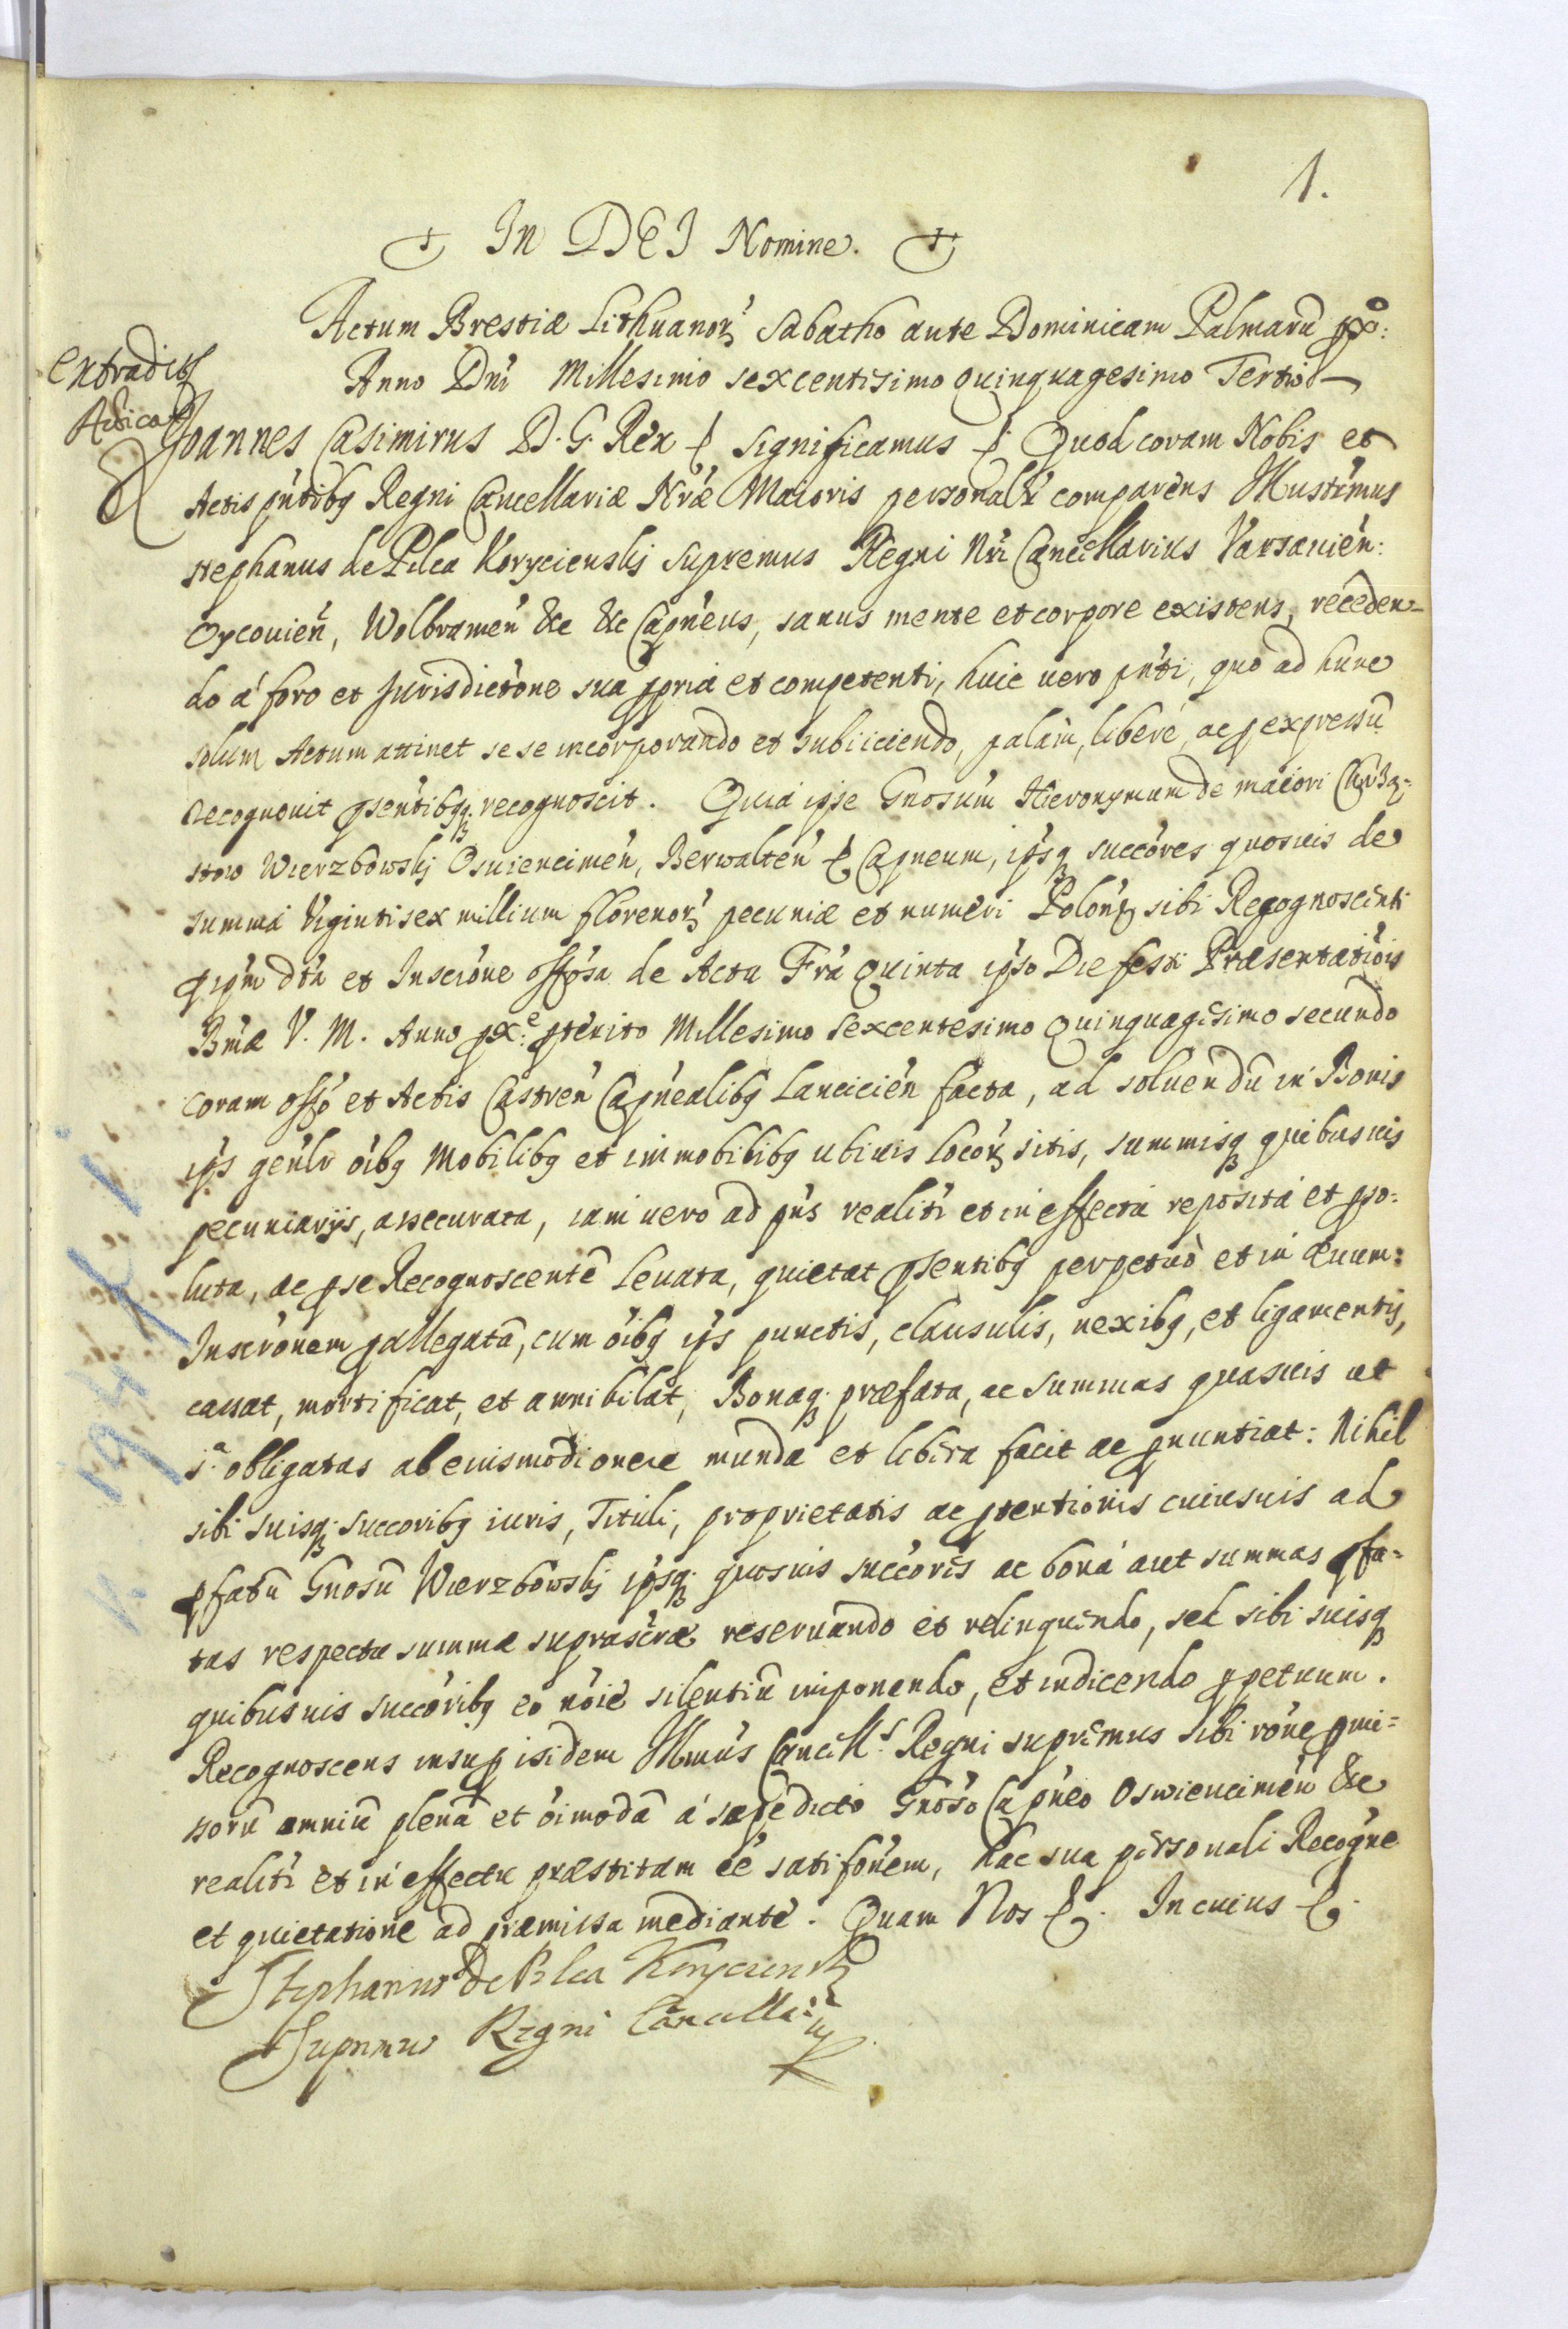 1.
In DEI Nomine.
Actum Brestiæ Lithuanor sabatho ante Dominicam Palmarũ pxo:
Anno Dni Millesimo sexcentisimo quinquagesimo Tertio
extradit
Joannes Casimirus D. G. Rex & significamus & Quod coram Nobis et
Actis pntibq Regni Cancellariæ Nræ Maioris personalr comparens Illustrimus
stephanus de Pilca Koryciensky supremus Regni Nri Cancellarius Varsauien:
Oycouien, Wolbramen &c &c Capneus, sanus mente et corpore existens, receden=
do á foro et Jurisdictone sua ppria et competenti, huic uero pnti, quo ad hunc
solum Actum attinet se se incorporando et subiiciendo, palam, liberé, ac p expressũ
recognouit psentibqq recognoscit. Quia ipse Gnosum Hieronymum de maiori Chrzą=
stow Wierzbowskj Osuiencimen, Berwalten & Capneum, ipsq succóres quosuis de
summa Vigintisex millium florenor pecuniæ et numeri Polon sibi Recognoscenti
p ipm dta et Inscrone offosa de Actu Fra quinta ipso Die festi Præsentatiois
Bmæ V. M. Anno pxe pterito Millesimo sexcentesimo quinquagesimo secundo
coram offo et Actis Castren Capnealibq Lancicien facta, ad soluendũ in Bonis
ips genlr oibq mobilibq et immobilibq ubiuis locor sitis, summisq quibusuis
pecuniarijs, assecurata, iam uero ad pns realitr et in effectu reposita et pso=
luta, ac p se Recognoscente leuata, quietat psentibq perpetuò et in æuum:
Inscronem pallegatã, cum oibq ips punctis, clausulis, nexibq, et ligamentis,
cassat, mortificat, et annihilat, Bonaq præfata, ac summas quasuis ut
sa obligatas ab eiusmodi onere munda et libera facit ac pnuntiat: Nihil
sibi suisq succoribq iuris, Tituli, proprietatis ac ptentionis cuiusuis ad
pfatũ Gnosũ Wierzbowskj ipsq quosuis succóres ac bona aut summas pfa=
tas respectu summæ suprascræ reseruando et relinquendo, sed sibi suisq
quibusuis succoribq eo noie silentiũ imponendo, et indicendo ppetuum.
Recognoscens insup isidem Illmus Cancells Regni supremus sibi rone pmi=
sorũ omniũ plenã et oimodã á sæpedicto Gnoso Capneo Oswiencimen &c
realitr et in effectu præstitam eé satisfonem, hac sua personali Recogne
et quietatione ad præmissa mediante. Quam Nos &. In cuius &.
Stephanus de Pilca Koryciensky
Supremus Regni Cancellari